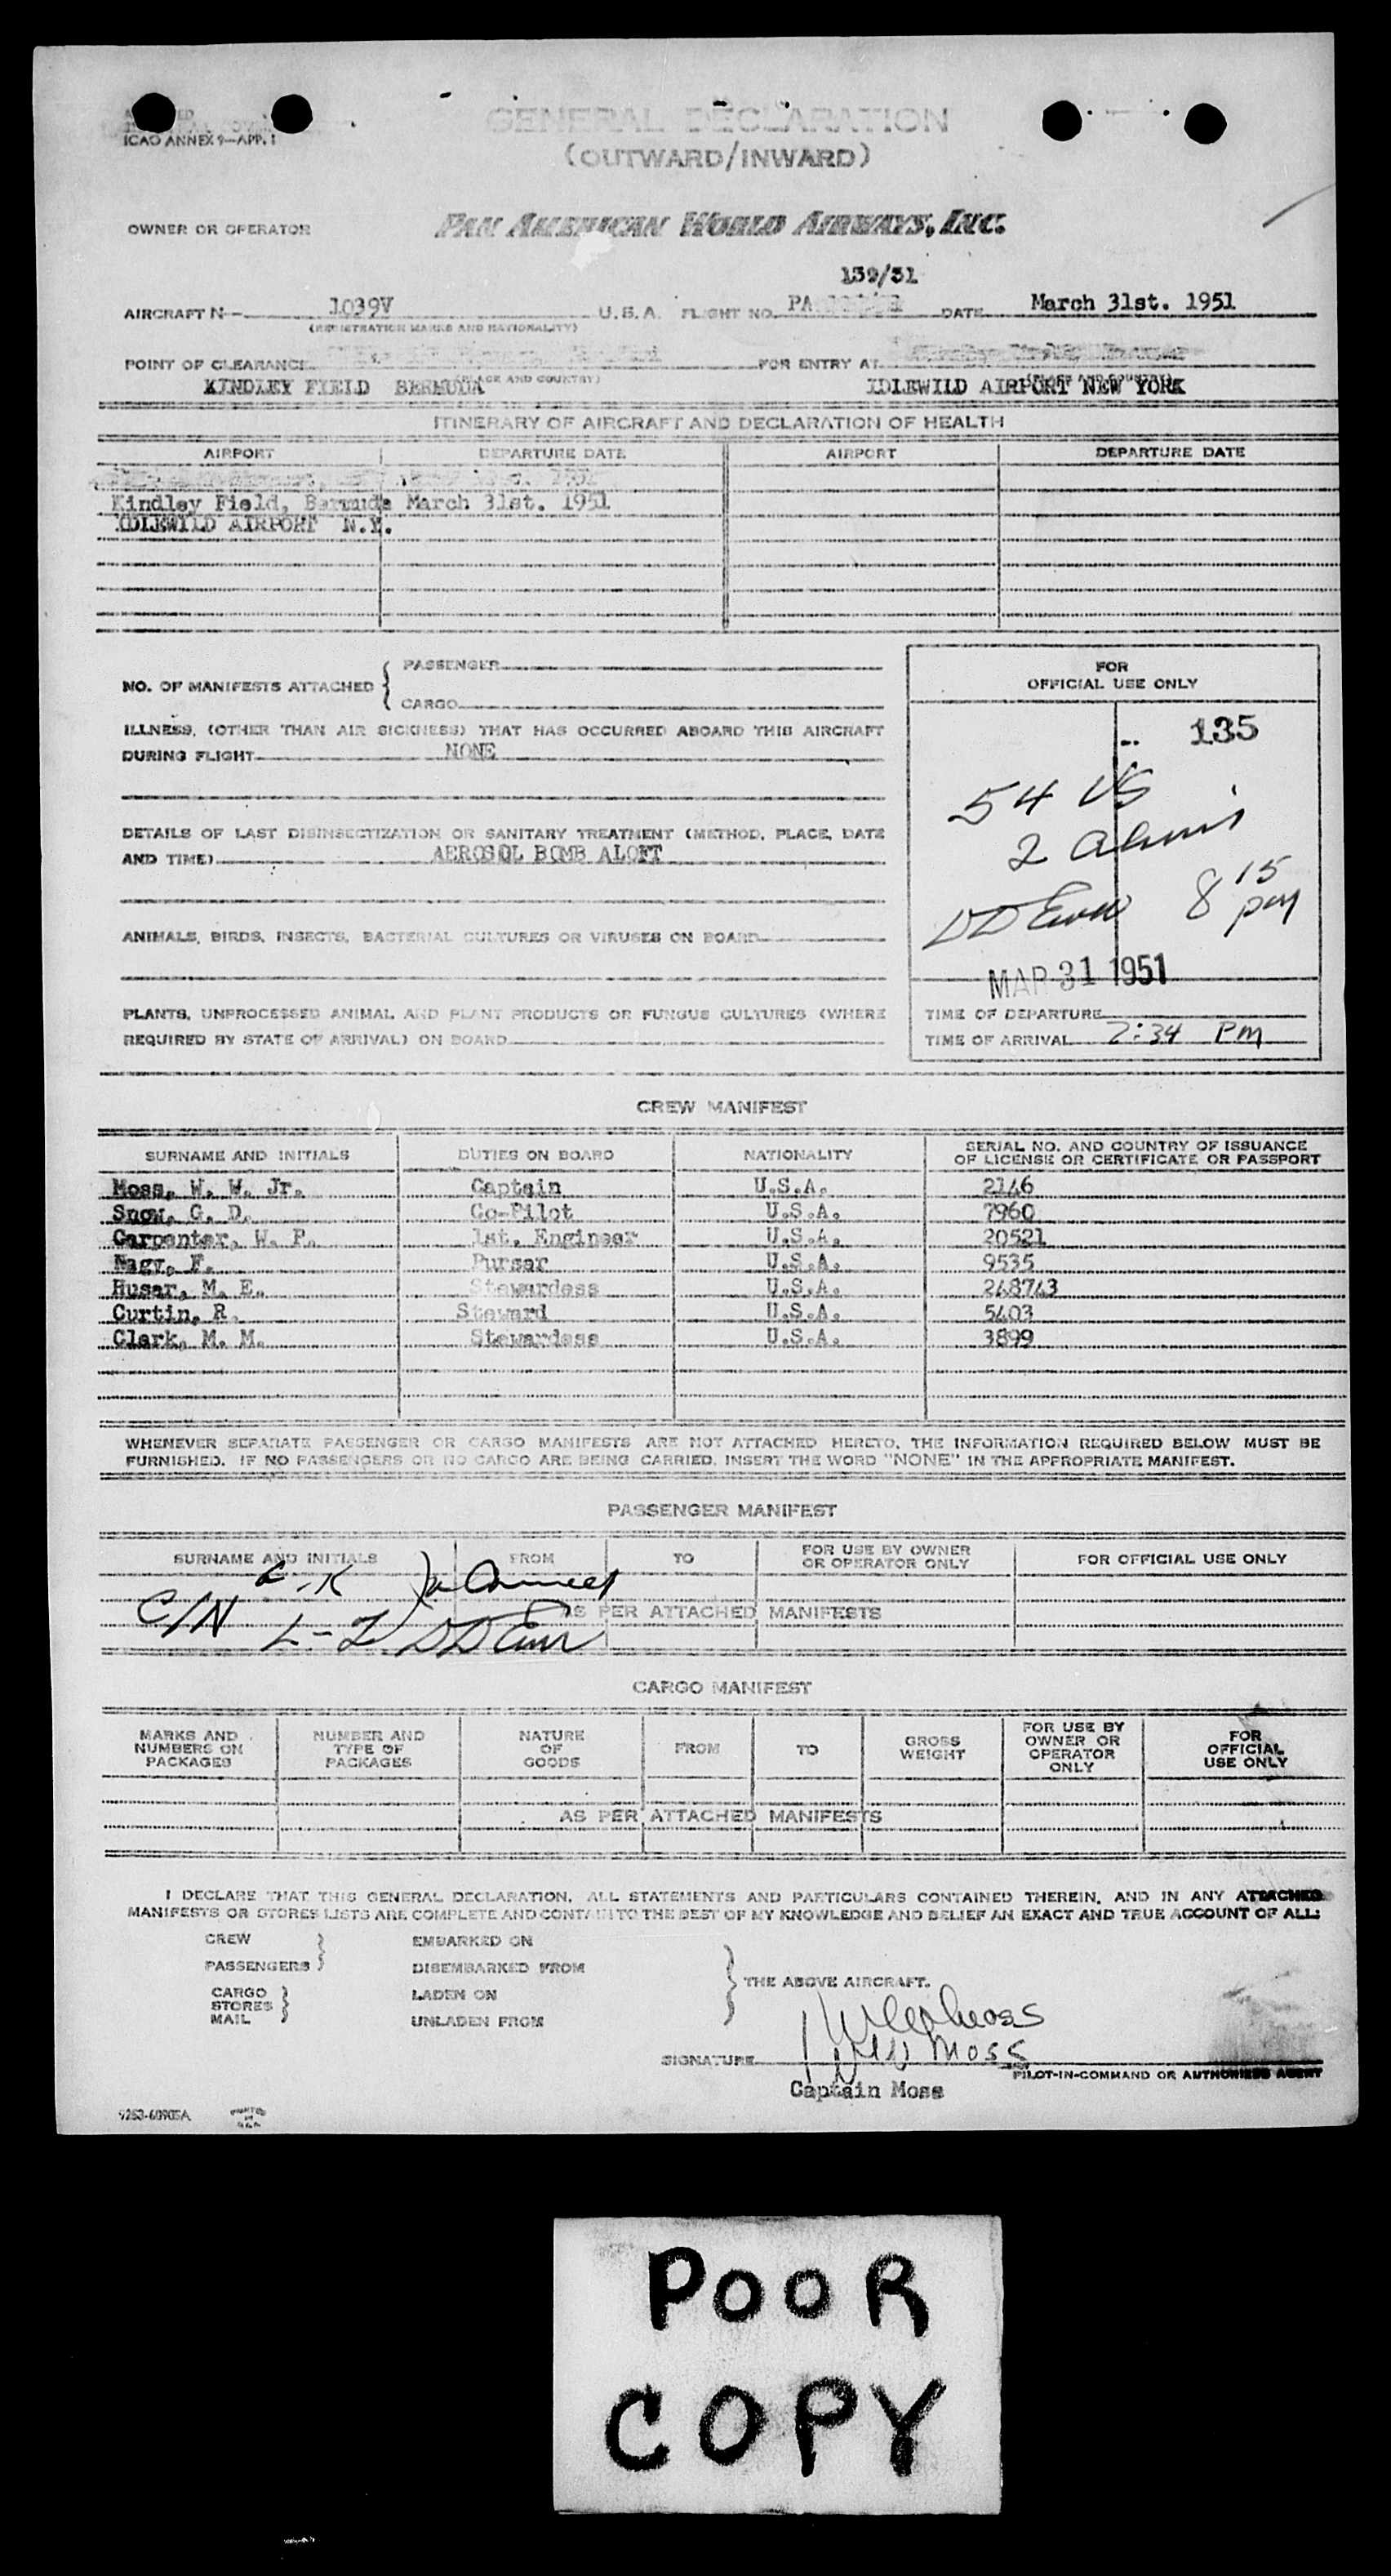 ICAO ANNEX 9—APP. 1
GENERAL DECLARATION
(OUTWARD/INWARD)
OWNER OR OPERATOR PAN AMERICAN WORLD AIRWAYS, INC.
139/31
AIRCRAFT N— 1039V U. S. A. FLIGHT NO. PA DATE March 31st. 1951
(REGISTRATION MARKS AND NATIONALITY)
POINT OF CLEARANCE FOR ENTRY AT
(PLACE AND COUNTRY) (PLACE AND COUNTRY)
KINDLEY FIELD BERMUDA IDLEWILD AIRPORT NEW YORK
ITINERARY OF AIRCRAFT AND DECLARATION OF HEALTH
AIRPORT DEPARTURE DATE AIRPORT DEPARTURE DATE
Kindley Field, Bermuda March 31st. 1951
IDLEWILD AIRPORT N.Y.
NO. OF MANIFESTS ATTACHED { PASSENGER
CARGO
ILLNESS, (OTHER THAN AIR SICKNESS) THAT HAS OCCURRED ABOARD THIS AIRCRAFT
DURING FLIGHT NONE
DETAILS OF LAST DISINSECTIZATION OR SANITARY TREATMENT (METHOD, PLACE, DATE
AND TIME) AEROSOL BOMB ALOFT
ANIMALS, BIRDS, INSECTS, BACTERIAL CULTURES OR VIRUSES ON BOARD
PLANTS, UNPROCESSED ANIMAL AND PLANT PRODUCTS OR FUNGUS CULTURES (WHERE
REQUIRED BY STATE OF ARRIVAL) ON BOARD
FOR
OFFICIAL USE ONLY
135
54 US
2 aliens
8 15 pm
MAR 31 1951
TIME OF DEPARTURE
TIME OF ARRIVAL 2:34 PM
CREW MANIFEST
SURNAME AND INITIALS DUTIES ON BOARD NATIONALITY SERIAL NO. AND COUNTRY OF ISSUANCE
OF LICENSE OR CERTIFICATE OR PASSPORT
Moss, W. W. Jr. Captain U.S.A. 2146
Snow, G. D. Co-Pilot U.S.A. 7960
Carpenter, W. P. 1st. Engineer U.S.A. 20521
Nagy, F. Purser U.S.A. 9535
Husar, M. E. Stewardess U.S.A. 248743
Curtin, R. Steward U.S.A. 5403
Clark, M. M. Stewardess U.S.A. 3899
WHENEVER SEPARATE PASSENGER OR CARGO MANIFESTS ARE NOT ATTACHED HERETO, THE INFORMATION REQUIRED BELOW MUST BE
FURNISHED. IF NO PASSENGERS OR NO CARGO ARE BEING CARRIED, INSERT THE WORD "NONE" IN THE APPROPRIATE MANIFEST.
PASSENGER MANIFEST
SURNAME AND INITIALS FROM TO FOR USE BY OWNER
OR OPERATOR ONLY FOR OFFICIAL USE ONLY
C/N
AS PER ATTACHED MANIFESTS
L-Z
CARGO MANIFEST
MARKS AND
NUMBERS ON
PACKAGES NUMBER AND
TYPE OF
PACKAGES NATURE
OF
GOODS FROM TO GROSS
WEIGHT FOR USE BY
OWNER OR
OPERATOR
ONLY FOR
OFFICIAL
USE ONLY
AS PER ATTACHED MANIFESTS
I DECLARE THAT THIS GENERAL DECLARATION, ALL STATEMENTS AND PARTICULARS CONTAINED THEREIN, AND IN ANY ATTACHED
MANIFESTS OR STORES LISTS ARE COMPLETE AND CONTAIN TO THE BEST OF MY KNOWLEDGE AND BELIEF AN EXACT AND TRUE ACCOUNT OF ALL:
CREW EMBARKED ON
PASSENGERS DISEMBARKED FROM
CARGO LADEN ON
STORES
MAIL UNLADEN FROM
THE ABOVE AIRCRAFT.
SIGNATURE W W Moss
PILOT-IN-COMMAND OR AUTHORIZED AGENT
Captain Moss
9253-60905A PRINTED
IN
U.S.A.
POOR
COPY